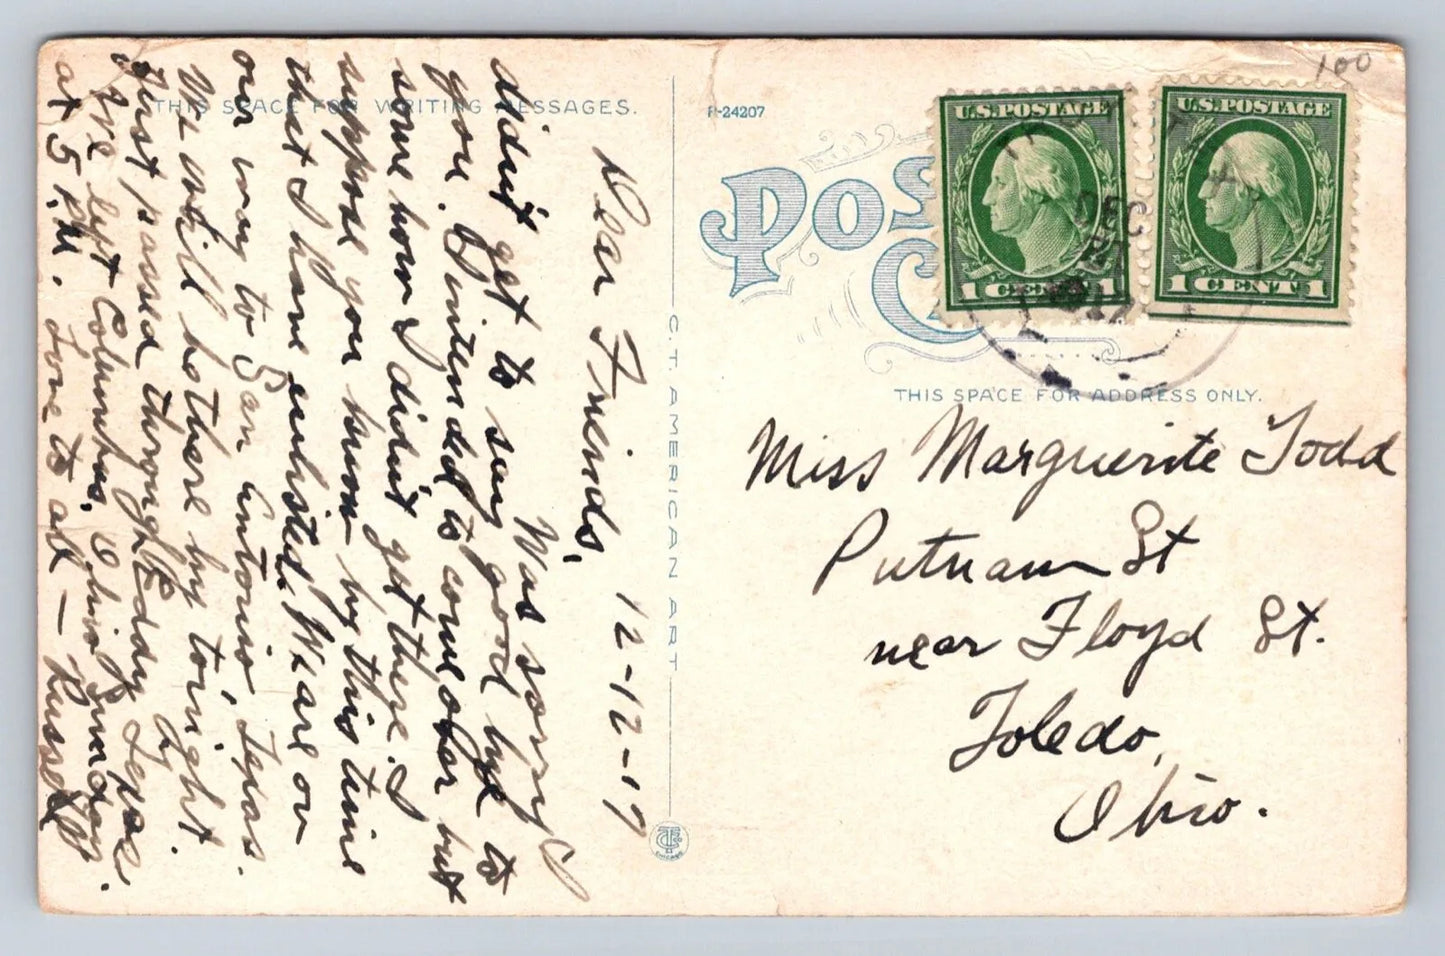 THIS SPACE FOR WRITING MESSAGES.
12-12-17
Dear Friends,
Was sorry I
didn't get to say good bye to
you. I intended to come over but
some how I didn't get there. I
suppose you know by this time
that I have enlisted. We are on
our way to San Antonio, Texas.
We will be there by to night.
Just passed through Eddy Texas.
We left Columbus, Ohio,
at 5 P.M. Love to all — Russell
C.T. AMERICAN ART
CHICAGO
R-24207
100
POST
U.S. POSTAGE
1 CENT 1
U.S. POSTAGE
1 CENT 1
DEC
THIS SPACE FOR ADDRESS ONLY.
Miss Marguerite Todd
Putnam St
near Floyd St.
Toledo,
Ohio.